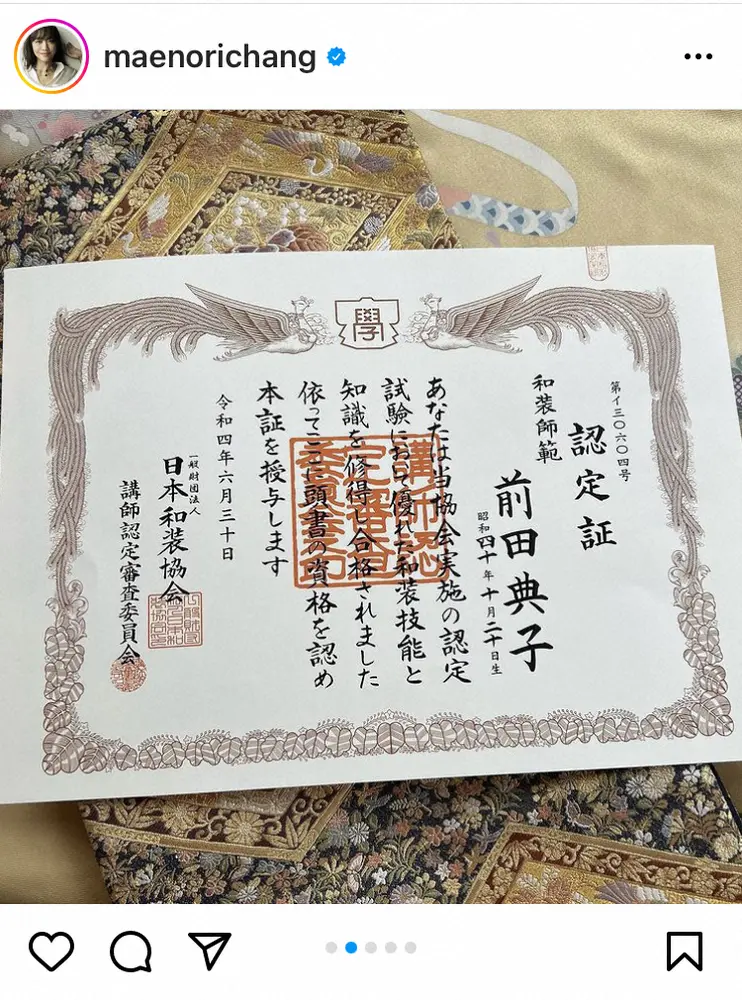 maenorichang
學
第イ三〇六〇四号
認定証
和装師範
前田典子
昭和四十年十月二十日生
あなたは当協会実施の認定
試験において優れた和装技能と
知識を修得し合格されました
依ってここに頭書の資格を認め
本証を授与します
令和四年六月三十日
一般財団法人
日本和装協会
講師認定審査委員会